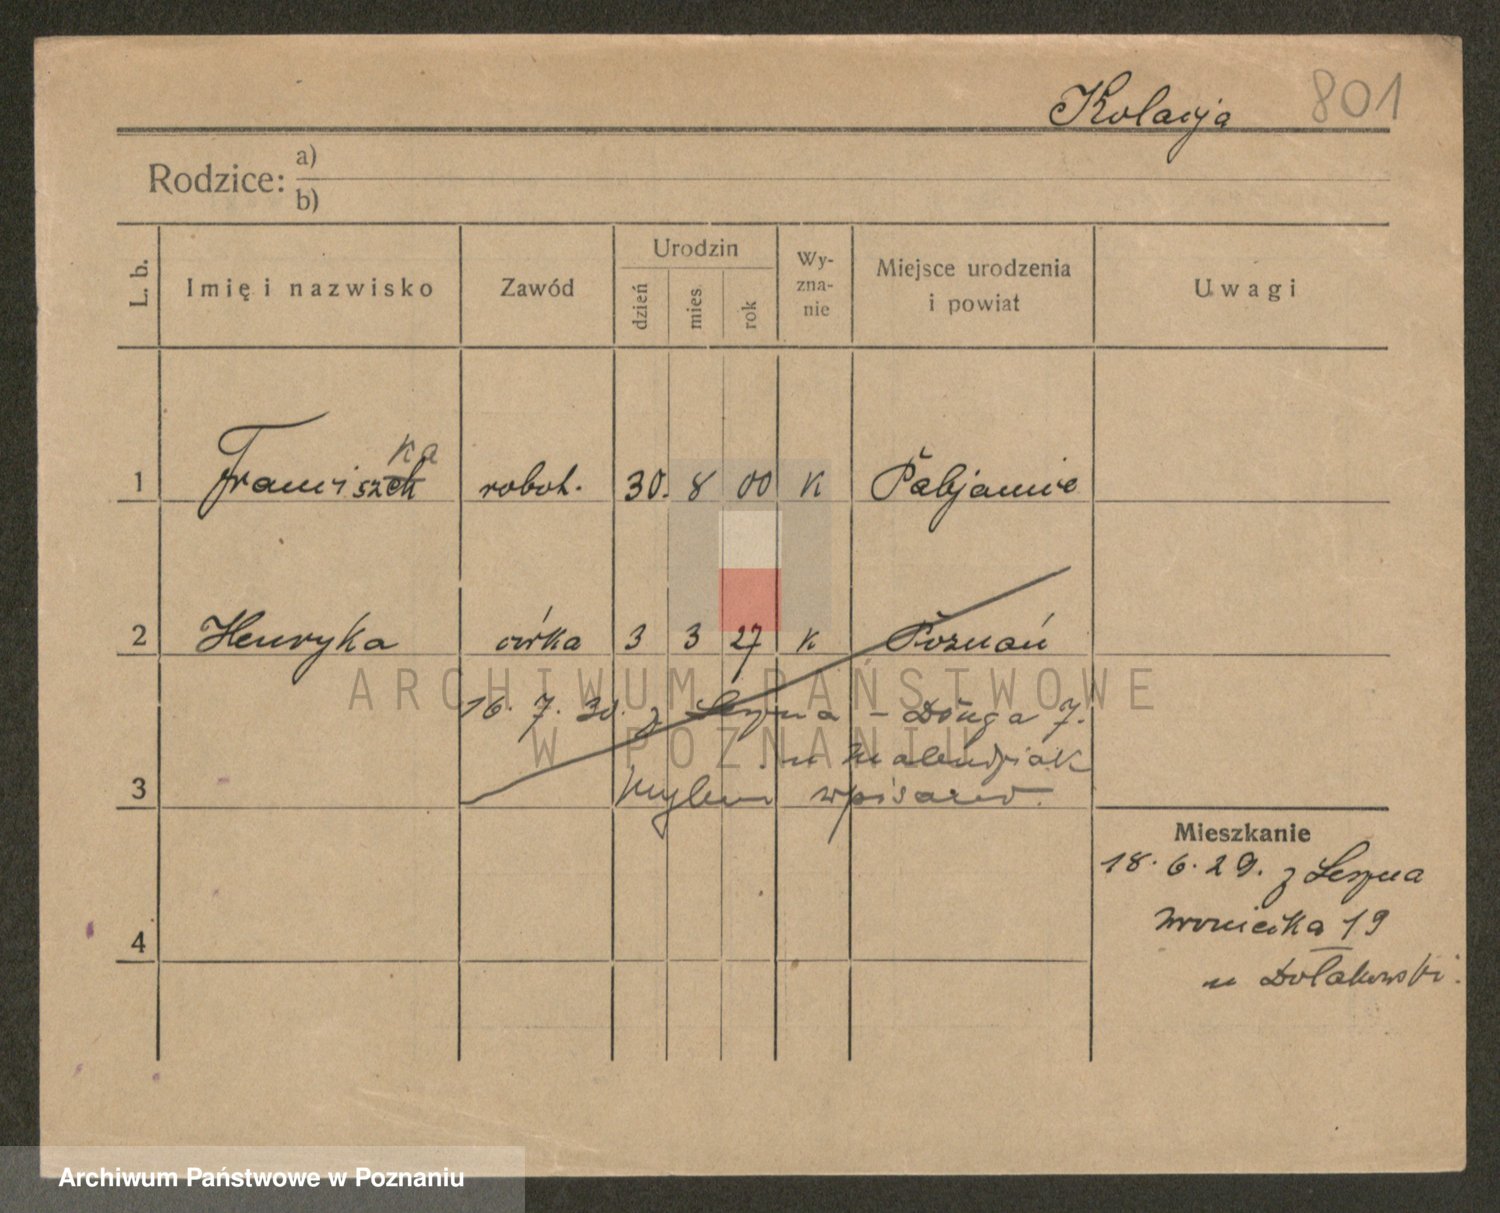 Kolacja 801
Rodzice: a)
b)
L. b. Imię i nazwisko Zawód Urodzin dzień mies. rok Wy-zna-nie Miejsce urodzenia i powiat Uwagi
ka
1 Franciszek robot. 30. 8 00 K Pabjanice
2 Henryka córka 3 3 27 K Poznań
16. 7. 30. z Leszna – Długa 7.
u
3 Mylnie wpisano.
Mieszkanie
18. 6. 29. z Leszna
Wroniecka 19
4
u
ARCHIWUM PAŃSTWOWE
W POZNANIU
Archiwum Państwowe w Poznaniu